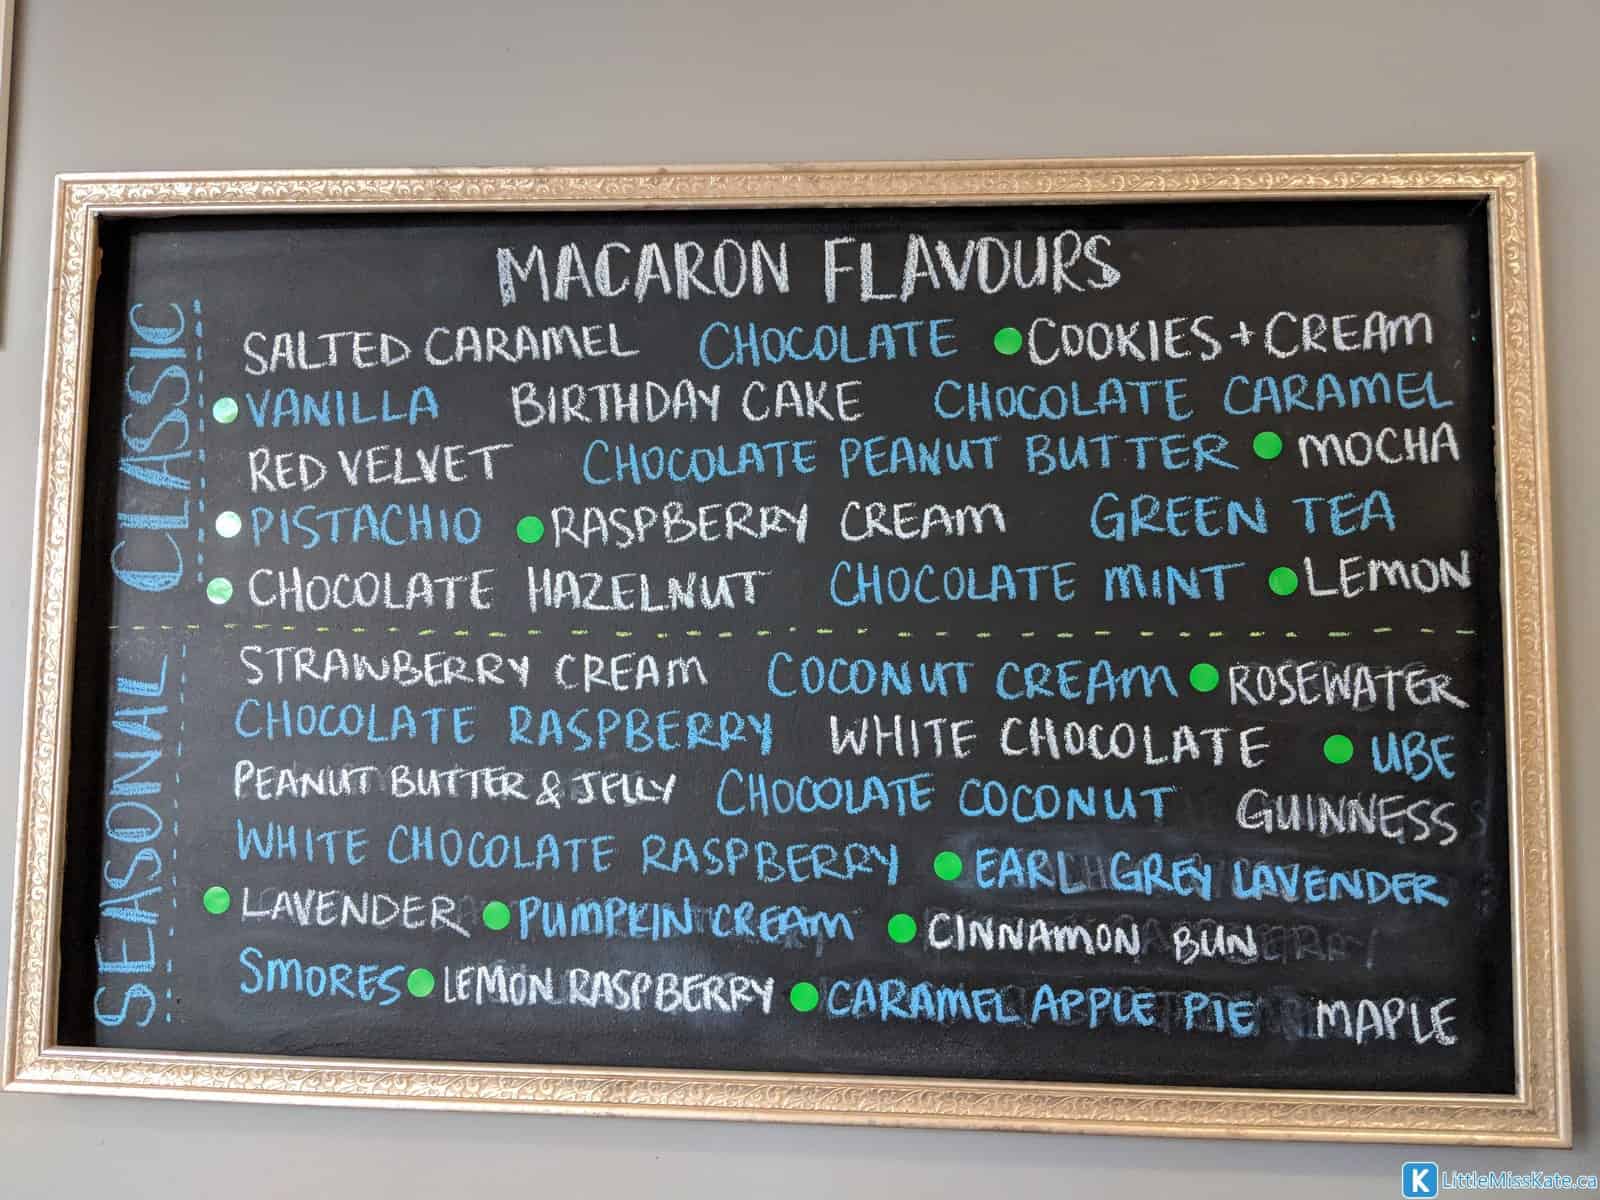 MACARON FLAVOURS
CLASSIC
SALTED CARAMEL CHOCOLATE COOKIES + CREAM
VANILLA BIRTHDAY CAKE CHOCOLATE CARAMEL
RED VELVET CHOCOLATE PEANUT BUTTER MOCHA
PISTACHIO RASPBERRY CREAM GREEN TEA
CHOCOLATE HAZELNUT CHOCOLATE MINT LEMON
SEASONAL
STRAWBERRY CREAM COCONUT CREAM ROSEWATER
CHOCOLATE RASPBERRY WHITE CHOCOLATE UBE
PEANUT BUTTER & JELLY CHOCOLATE COCONUT GUINNESS
WHITE CHOCOLATE RASPBERRY EARL GREY LAVENDER
LAVENDER PUMPKIN CREAM CINNAMON BUN
SMORES LEMON RASPBERRY CARAMEL APPLE PIE MAPLE
K LittleMissKate.ca